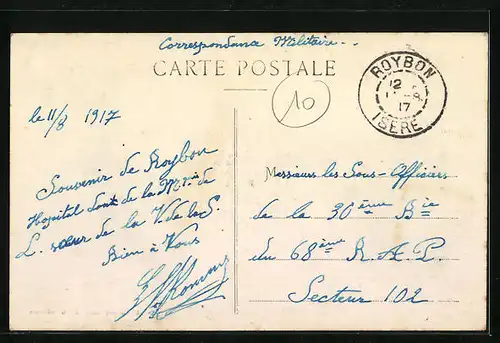 Correspondance Militaire..
CARTE POSTALE
10
ROYBON
12
17
ISÈRE
le 11/8 1917
Souvenir de Roybon
Hopital dont de la
L. sœur de la V. de la S.
Bien à Vous
Messieurs les Sous-Officiers
de la 30ème Bie
du 68ème R.A.P.
Secteur 102